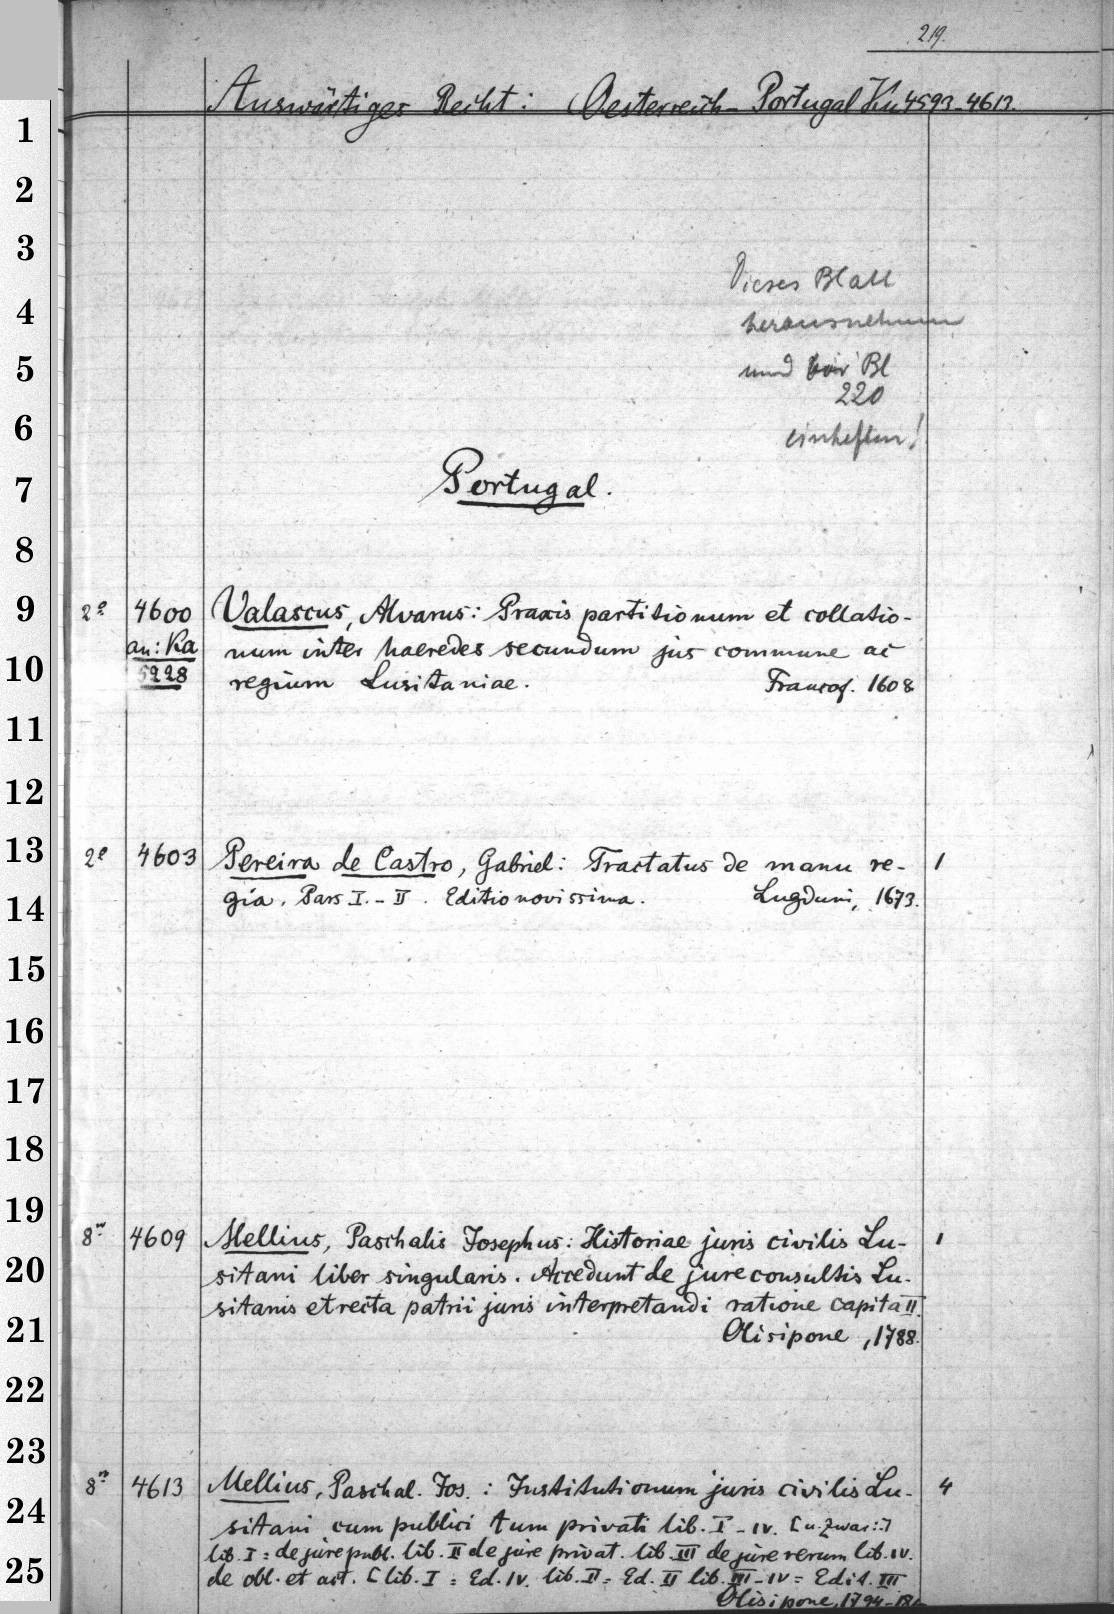 219.
Auswärtiges Recht: Oesterreich - Portugal Ku 4593-4613.
1
2
3
Dieses Blatt
4
herausnehmen
5
und vor Bl
220
6
einheften!
7
Portugal.
8
9
2º 4600 Valascus, Alvarus: Praxis partitionum et collatio-
an: Ka num inter haeredes secundum jus commune ac
10
5228 regium Lusitaniae. Francof. 1608
11
12
13
2º 4603 Pereira de Castro, Gabriel: Tractatus de manu re- 1
14
gia. Pars I.-II. Editio novissima. Lugduni, 1673.
15
16
17
18
19
8º 4609 Mellius, Paschalis Josephus: Historiae juris civilis Lu- 1
20
sitani liber singularis. Accedunt de jure consultis Lu-
sitanis et recta patrii juris interpretandi ratione capita II.
21
Olisipone, 1788.
22
23
8º 4613 Mellius, Paschal. Jos.: Institutionum juris civilis Lu- 4
24
sitani cum publici tum privati lib. I-IV. [u. zwar:]
lib. I: de jure publ. lib. II de jure privat. lib. III de jure rerum lib. IV.
25
de obl. et act. [lib. I = Ed. IV. lib. II = Ed. II lib. III-IV = Edit. III
Olisipone, 1794-